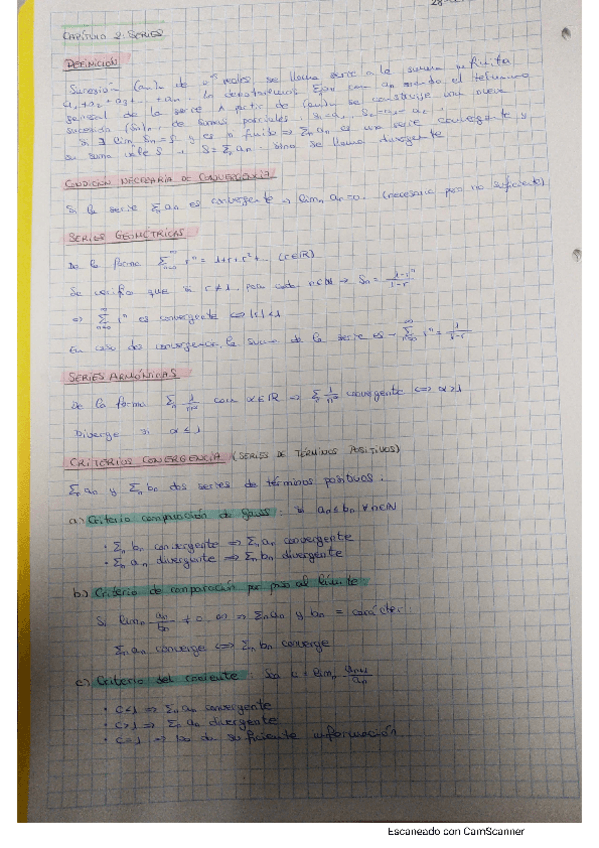 28
CAPÍTULO 2: SERIES
DEFINICIÓN
Sucesión (an)n de nos reales se llama serie a la suma infinita
a1+a2+a3+...+an. La denotaremos Σn an con an siendo el término
general de la serie. A partir de (an)n se construye una nueva
sucesión (Sn)n, de sumas parciales: S1=a1, S2=a1+a2
Si ∃ lim Sn=S y es finito ⇒ Σn an es una serie convergente y
su suma vale S → S=Σn an. Sino se llama divergente
CONDICIÓN NECESARIA DE CONVERGENCIA
Si la serie Σn an es convergente → limn an=0. (necesario pero no suficiente)
SERIES GEOMÉTRICAS
De la forma Σ_{n=0}^∞ r^n = 1+r+r²+... (r∈R)
Se verifica que si r≠1, para cada n∈N → Sn = (1-r^n)/(1-r)
⇒ Σ_{n=0}^∞ r^n es convergente ⇔ |r|<1
En caso de convergencia, la suma de la serie es → Σ_{n=0}^∞ r^n = 1/(1-r)
SERIES ARMÓNICAS
De la forma Σn 1/n^α con α∈R → Σn 1/n^α convergente ⇔ α>1
Diverge si α≤1
CRITERIOS CONVERGENCIA (SERIES DE TÉRMINOS POSITIVOS)
Σn an y Σn bn dos series de términos positivos:
a) Criterio comparación de Gauss: si an≤bn ∀n∈N
· Σn bn convergente ⇒ Σn an convergente
· Σn an divergente ⇒ Σn bn divergente
b) Criterio de comparación por paso al límite:
Si limn an/bn ≠ 0, ∞ ⇒ Σn an y bn = carácter
Σn an converge ⇔ Σn bn converge
c) Criterio del cociente: Sea L = limn an+1/an
· L<1 ⇒ Σn an convergente
· L>1 ⇒ Σn an divergente
· L=1 → no da suficiente información
Escaneado con CamScanner